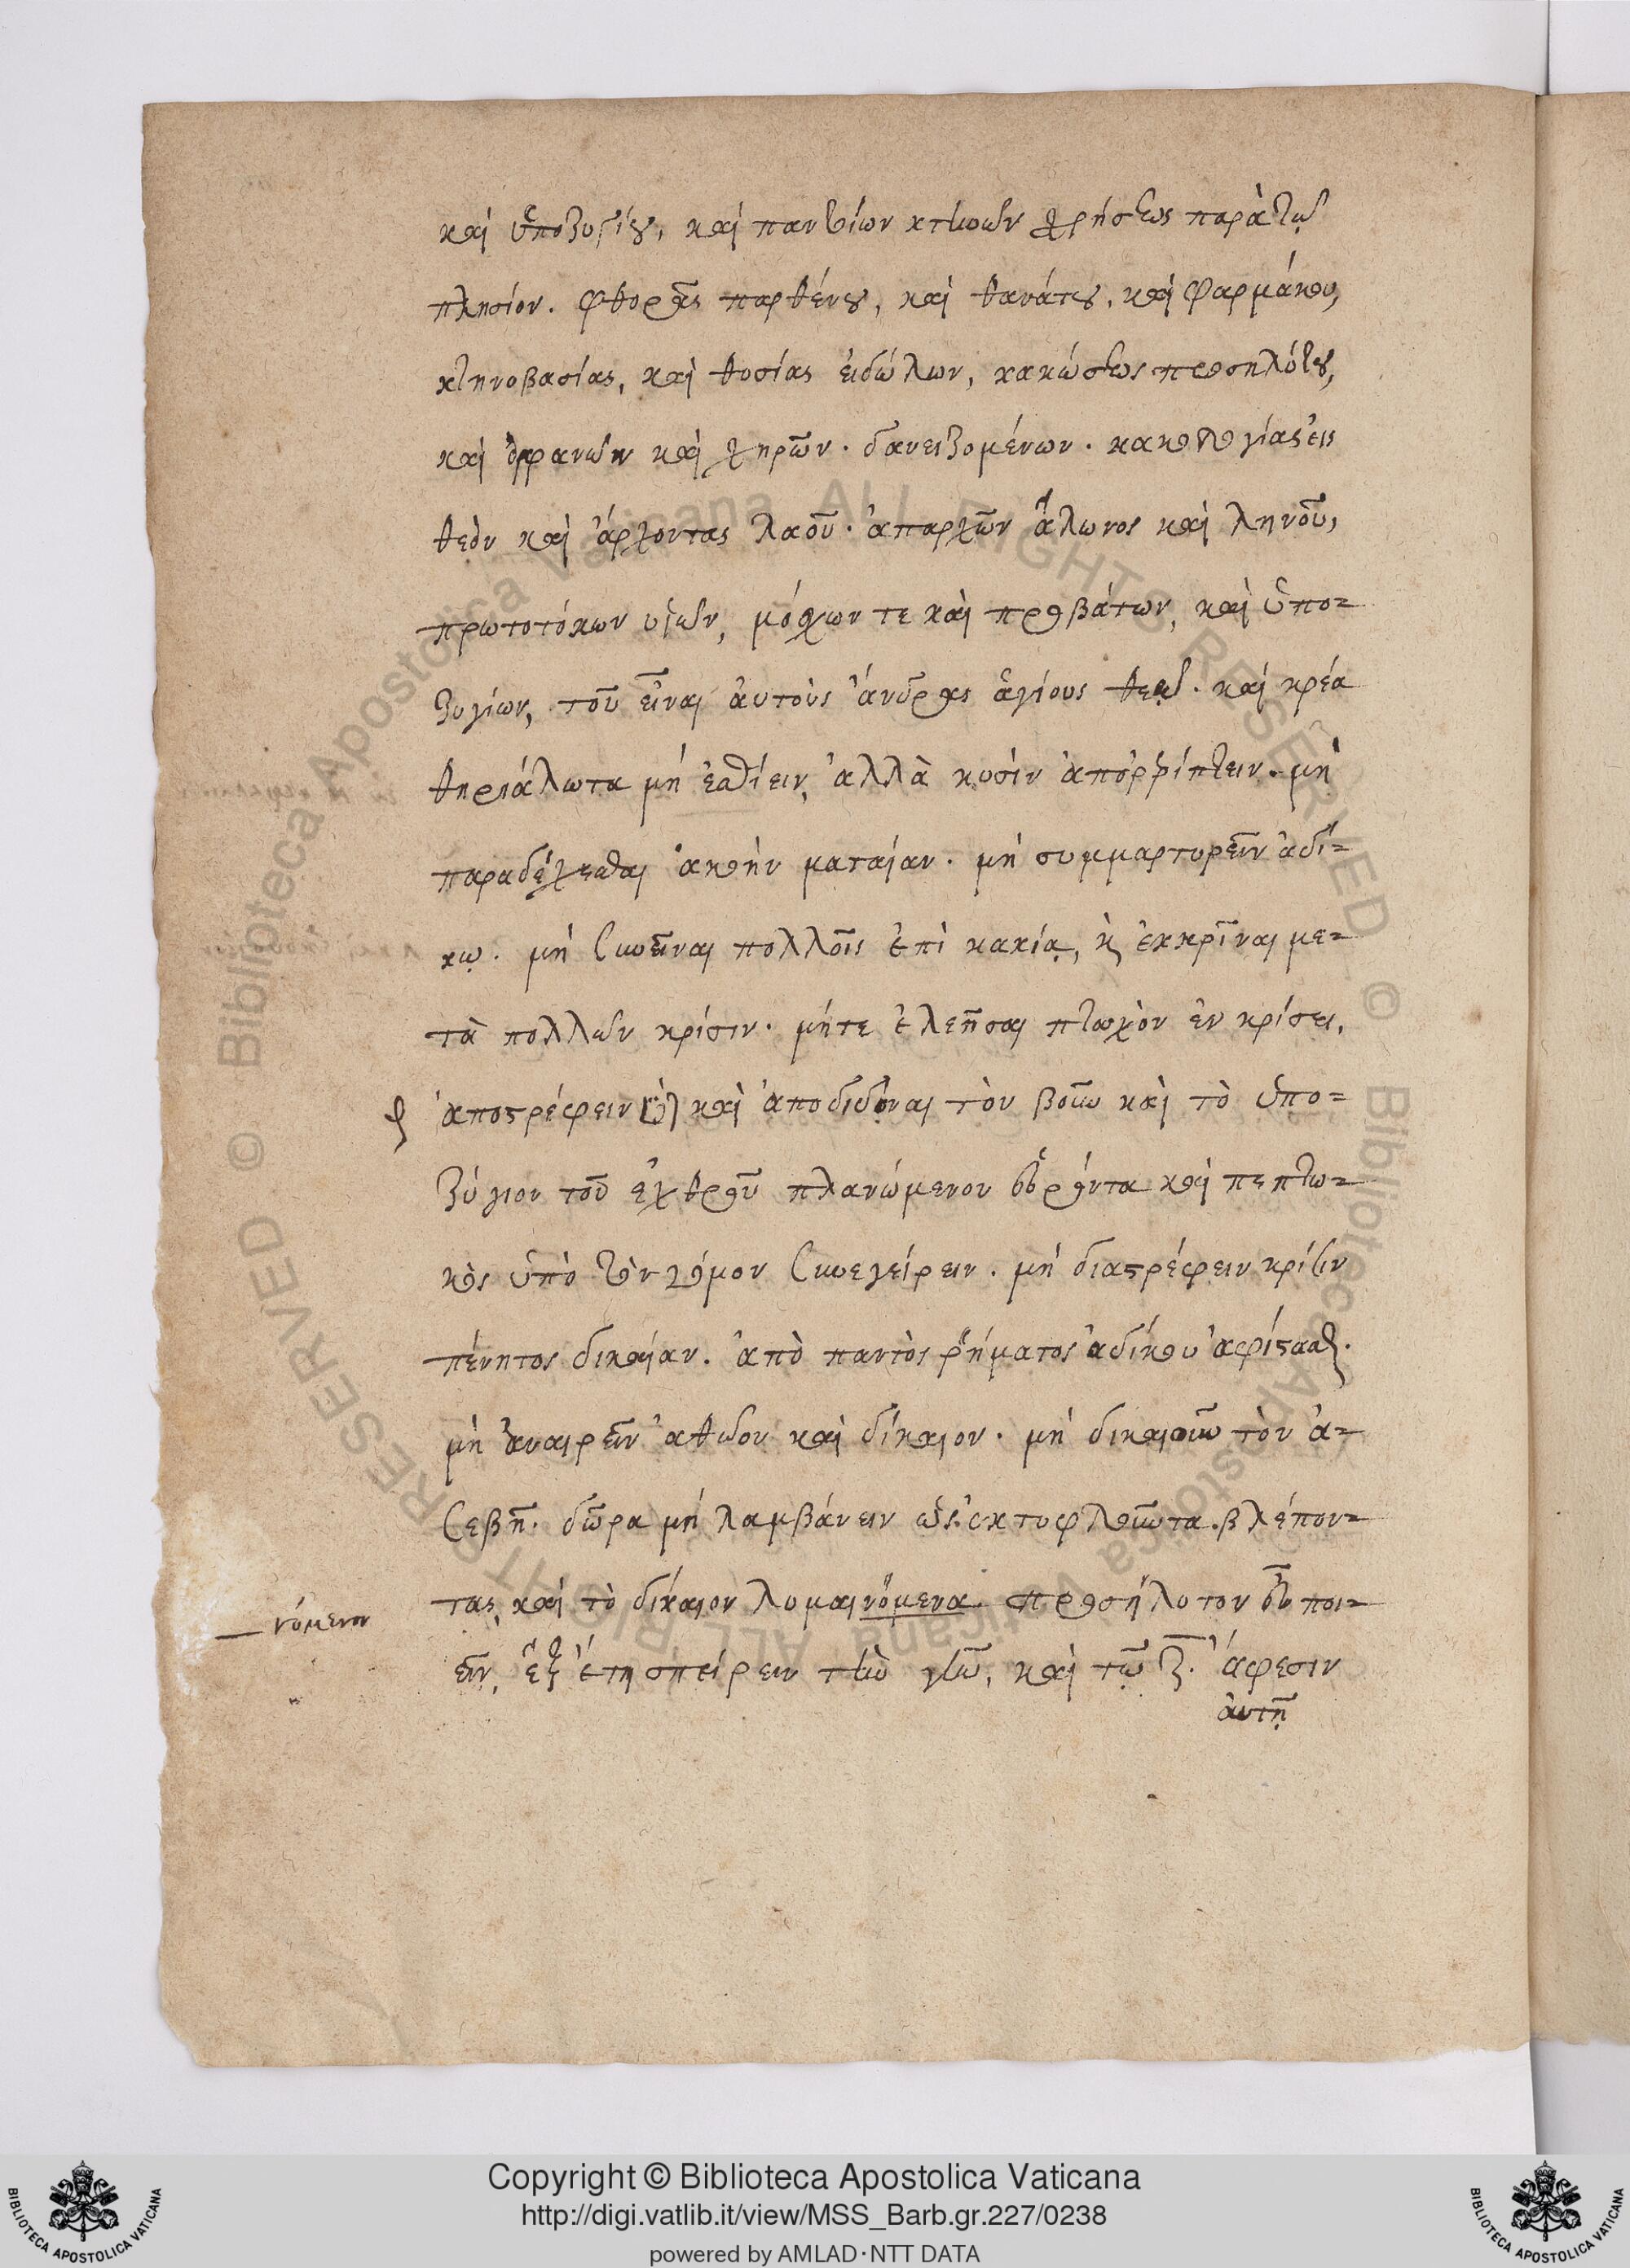 καὶ ὑποζυγίου, καὶ παντίων κτηνῶν χρήσεως παρὰ τῷ
πλησίον. φθορᾶς παρθένου, καὶ θανάτου, καὶ φαρμάκου,
κτηνοβασίας, καὶ θυσίας εἰδώλων, κακώσεως προσηλύτου,
καὶ ὀρφανῶν καὶ χηρῶν. δανειζομένων. κακολογίας εἰς
θεὸν καὶ ἄρχοντας λαοῦ. ἀπαρχῶν ἅλωνος καὶ ληνοῦ,
πρωτοτόκων υἱῶν, μόσχων τε καὶ προβάτων, καὶ ὑπο-
ζυγίων, τοῦ εἶναι αὐτοὺς ἄνδρας ἁγίους θεῷ. καὶ κρέα
θηριάλωτα μὴ ἐσθίειν, ἀλλὰ κυσὶν ἀπορρίπτειν. μὴ
παραδέχεσθαι ἀκοὴν ματαίαν. μὴ συμμαρτυρεῖν ἀδί-
κῳ. μὴ συνεῖναι πολλοῖς ἐπὶ κακίᾳ, κ ἐκκρῖναι με-
τὰ πολλῶν κρίσιν. μήτε ἐλεῆσαι πτωχὸν ἐν κρίσει,
ἀποστρέφειν καὶ ἀποδιδόναι τὸν βοῦν καὶ τὸ ὑπο-
ζύγιον τοῦ ἐχθροῦ πλανώμενον εὑρόντα καὶ πεπτω-
κὸς ὑπὸ τὸν γόμον συνεγείρειν. μὴ διαστρέφειν κρίσιν
πένητος δικαίαν. ἀπὸ παντὸς ῥήματος ἀδίκου ἀφίστασθαι.
μὴ ἀναιρεῖν ἀθῶον καὶ δίκαιον. μὴ δικαιοῦν τὸν ἀ-
σεβῆ. δῶρα μὴ λαμβάνειν ὡς ἐκτυφλοῦντα βλέπον-
τας, καὶ τὸ δίκαιον λυμαινόμενα. προσήλυτον εὖ ποι-
νόμενον
εῖν, ἓξ ἔτη σπείρειν τὴν γῆν, καὶ τῷ ζ. ἄφεσιν
αὐτῇ
© Biblioteca Apostolica Vaticana ALL RIGHTS RESERVED
© Biblioteca Apostolica Vaticana ALL RIGHTS RESERVED
Copyright © Biblioteca Apostolica Vaticana
http://digi.vatlib.it/view/MSS_Barb.gr.227/0238
powered by AMLAD·NTT DATA
BIBLIOTECA APOSTOLICA VATICANA
BIBLIOTECA APOSTOLICA VATICANA